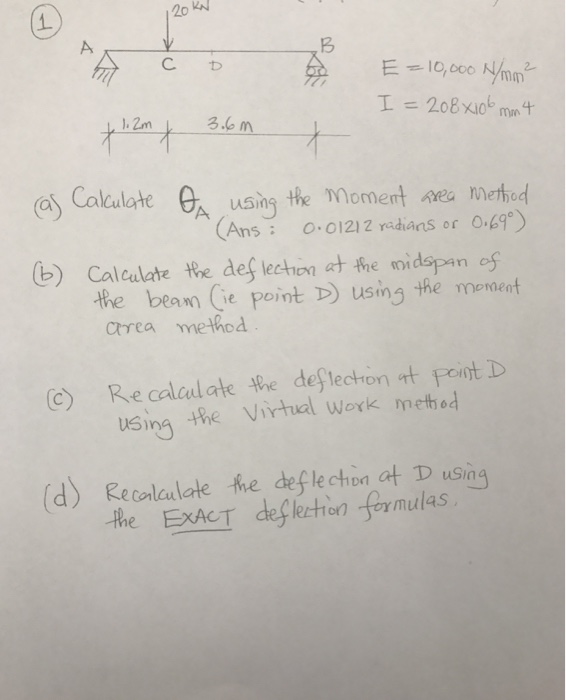 1
20 KN
A
B
C
D
E = 10,000 N/mm²
I = 208x10⁶ mm4
1.2m
3.6m
(a) Calculate θA using the Moment area Method
(Ans : 0.01212 radians or 0.69°)
(b) Calculate the deflection at the midspan of
the beam (ie point D) using the moment
area method.
(c) Recalculate the deflection at point D
using the Virtual Work method
(d) Recalculate the deflection at D using
the EXACT deflection formulas.